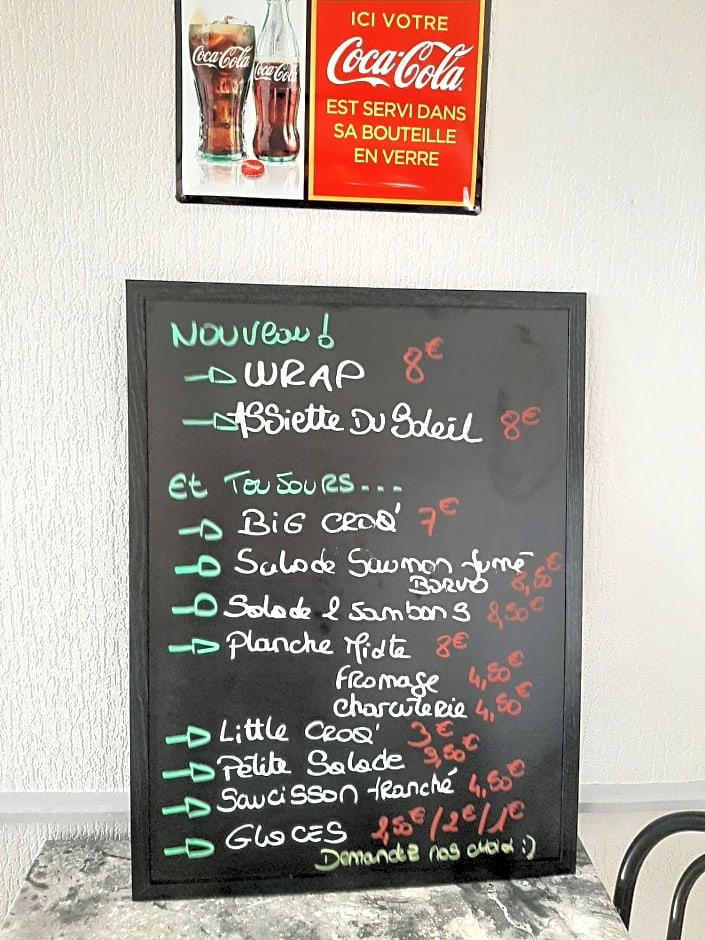 Coca-Cola
Coca-Cola
ICI VOTRE
Coca-Cola
EST SERVI DANS
SA BOUTEILLE
EN VERRE
NOUVEAU !
WRAP 8€
ASSIETTE DU SOLEIL 8€
ET TOUJOURS...
BIG CROQ' 7€
Salade Saumon fumé
8,50€
Salade 2 Jambons 8,50€
Planche Mixte 8€
Fromage 4,50€
Charcuterie 4,50€
Little CROQ' 3€
Petite Salade 3,50€
Saucisson tranché 4,50€
GLACES 2,50€/2€/1€
Demandez nos choix :)